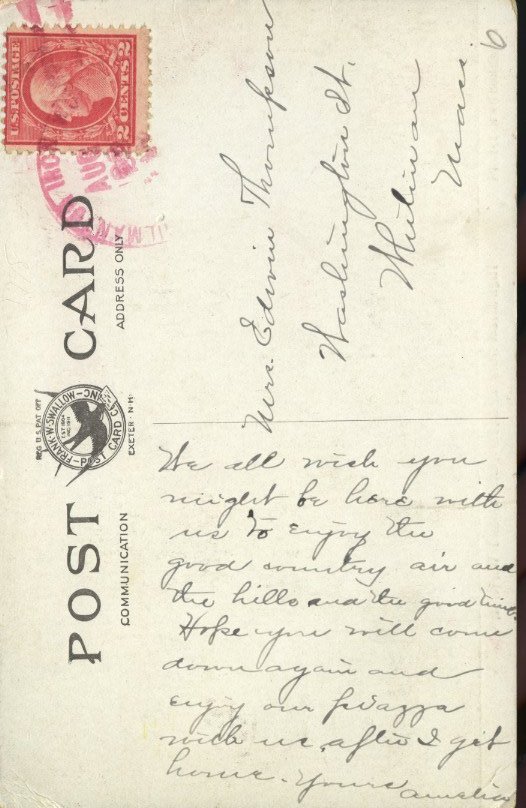 POST CARD
COMMUNICATION
ADDRESS ONLY
REG U.S. PAT. OFF.
FRANK·W·SWALLOW·POST CARD CO. INC.
EXETER·N·H·
U.S. POSTAGE
2 CENTS 2
AUG
6
Mrs. Edwin Thompson
Washington St.
We all wish you
might be here with
us to enjoy the
good country air and
the hills and the good time.
Hope you will come
down again and
enjoy our piazza
with us, after I get
home. Yours Amelia